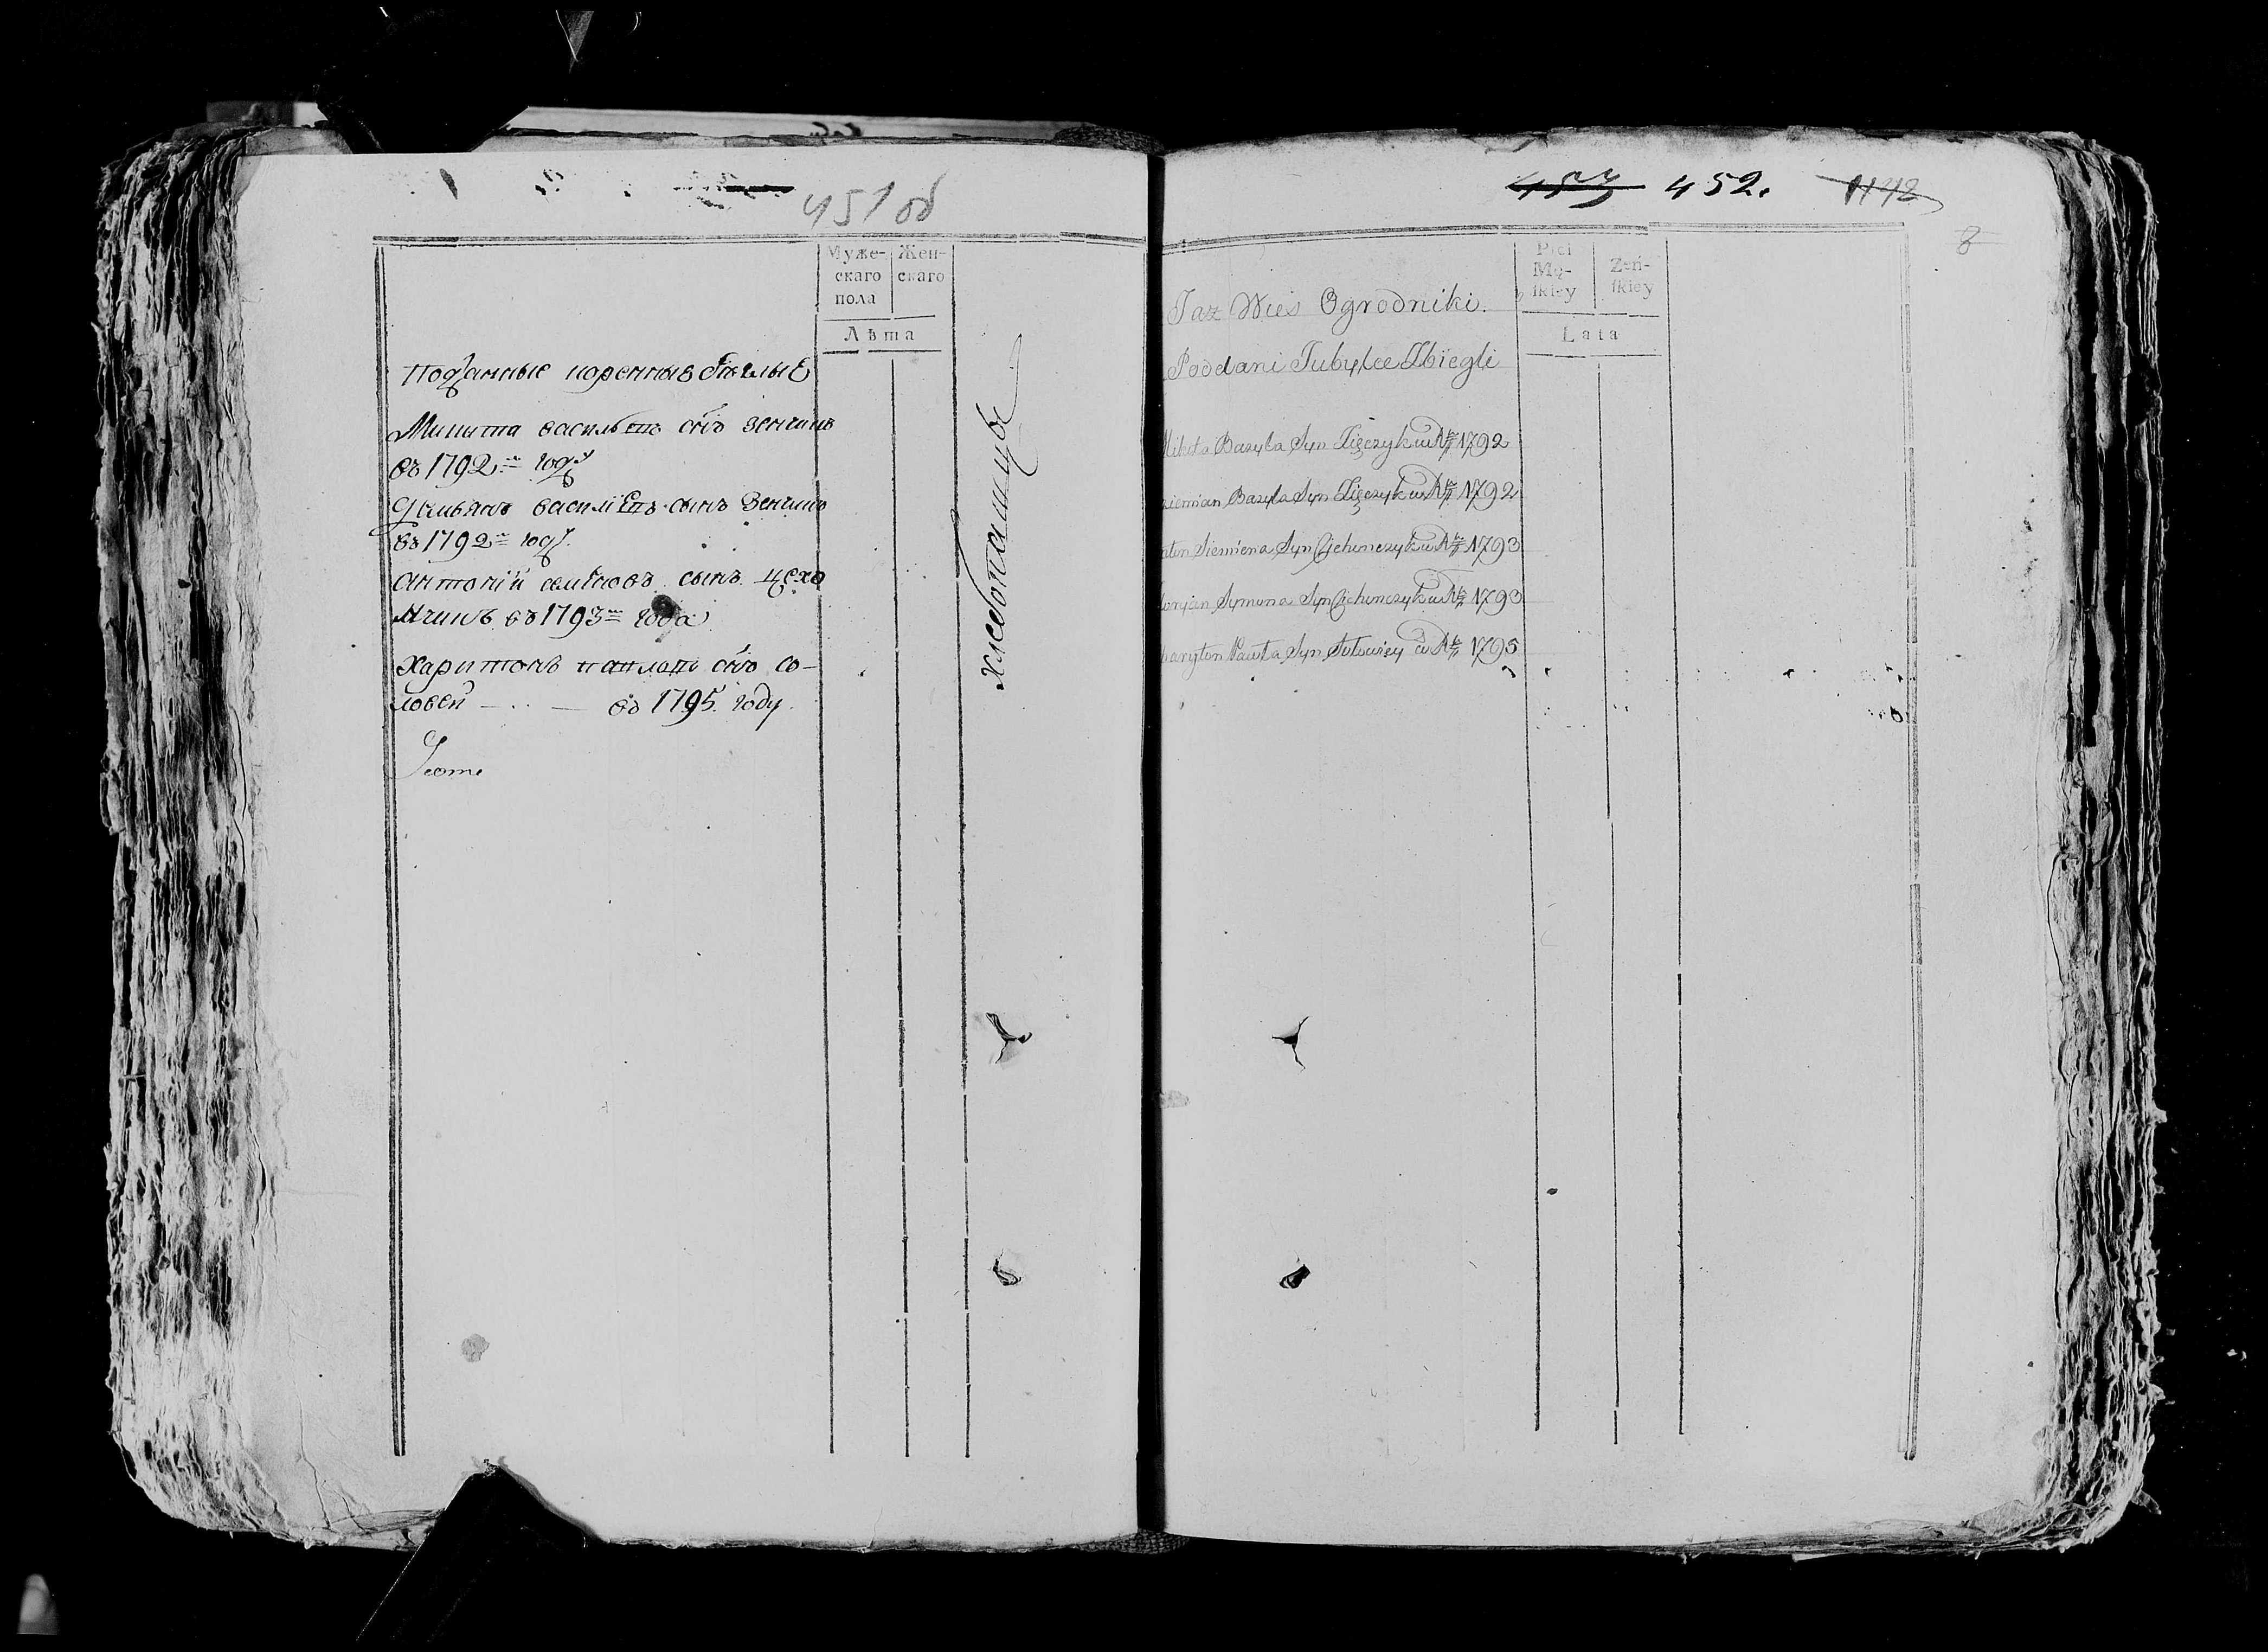 451 об
Муже-
скаго
пола
Жен-
скаго
Лѣта
подданные коренные беглые
Микита василевъ снъ зенчикъ
въ 1792 году
василевъ сынъ зенчикъ
въ 1792 году
антоній семіновъ сынъ цехо
въ 1793 года
харитонъ павловъ снъ со-
ловей — въ 1795. году
хлебопашцы
457 452. 1142
8
Płci
Mę-
skiey
Żeń-
skiey
Lata
Taż Wieś Ogrodniki.
Poddani Tubylce Zbiegli
Mikita Bazyla Syn Zięczyk w Rku 1792
ziemian Bazyla Syn Zięczyk w Rku 1792
nton Siemiena Syn Cichonczyk w Rku 1793
Symona Syn Cichonczyk w Rku 1793
haryton Pawła Syn Sołowiey w Rku 1795